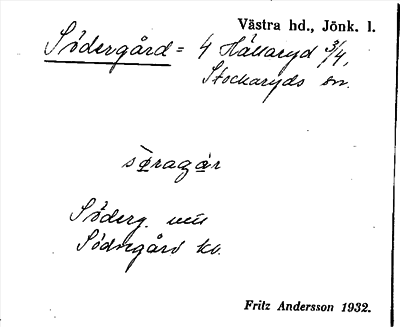 Västra hd., Jönk. l.
Södergård = 4 Hällaryd 3/4,
Stockaryds sn.
sø̀ragár
Söderg.
Södregård kb.
Fritz Andersson 1932.